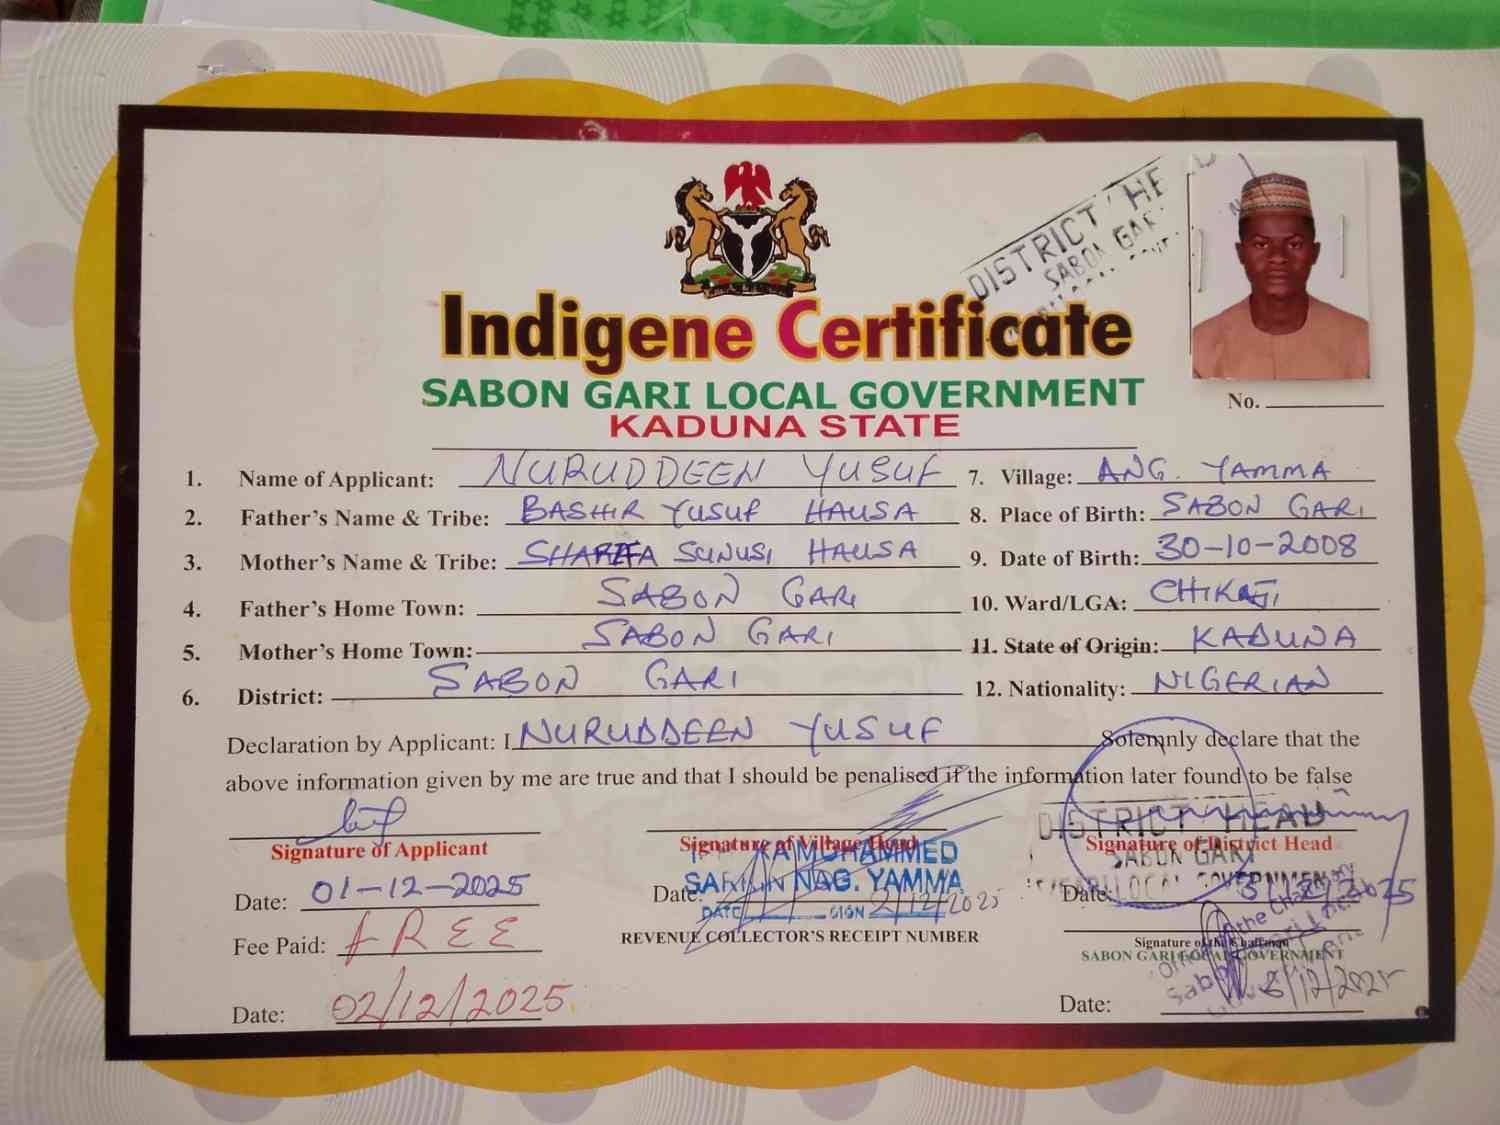 DISTRICT HEAD
SABON GARI
Indigene Certificate
SABON GARI LOCAL GOVERNMENT
KADUNA STATE
No.
1. Name of Applicant: NURUDDEEN YUSUF
7. Village: ANG. YAMMA
2. Father's Name & Tribe: BASHIR YUSUF HAUSA
8. Place of Birth: SABON GARI
3. Mother's Name & Tribe: SUNUSI HAUSA
9. Date of Birth: 30-10-2008
4. Father's Home Town: SABON GARI
10. Ward/LGA: CHIKAJI
5. Mother's Home Town: SABON GARI
11. State of Origin: KADUNA
6. District: SABON GARI
12. Nationality: NIGERIAN
Declaration by Applicant: I NURUDDEEN YUSUF Solemnly declare that the
above information given by me are true and that I should be penalised if the information later found to be false
Signature of Applicant
Date: 01-12-2025
Fee Paid: FREE
Date: 02/12/2025
Signature of Village Head
MUHAMMED
SARKIN NAG. YAMMA
DATE SIGN 2/12/2025
Date:
REVENUE COLLECTOR'S RECEIPT NUMBER
DISTRICT HEAD
Signature of District Head
SABON GARI
LOCAL GOVERNMENT
Date: 3/12/2025
Signature of the Chairman
SABON GARI LOCAL GOVERNMENT
Date: